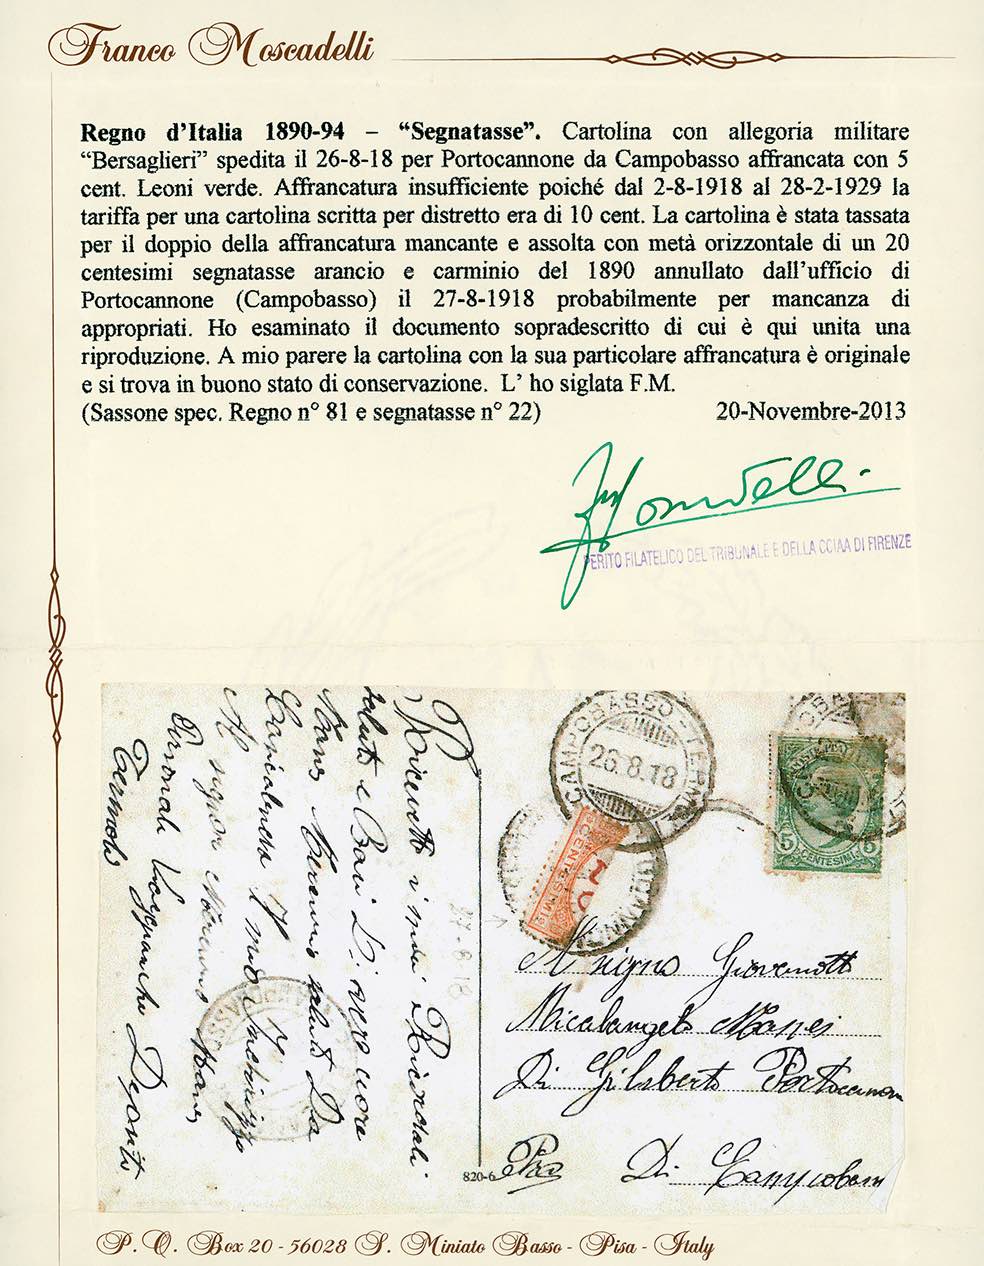 Franco Moscadelli
Regno d'Italia 1890-94 – "Segnatasse". Cartolina con allegoria militare
"Bersaglieri" spedita il 26-8-18 per Portocannone da Campobasso affrancata con 5
cent. Leoni verde. Affrancatura insufficiente poiché dal 2-8-1918 al 28-2-1929 la
tariffa per una cartolina scritta per distretto era di 10 cent. La cartolina è stata tassata
per il doppio della affrancatura mancante e assolta con metà orizzontale di un 20
centesimi segnatasse arancio e carminio del 1890 annullato dall'ufficio di
Portocannone (Campobasso) il 27-8-1918 probabilmente per mancanza di
appropriati. Ho esaminato il documento sopradescritto di cui è qui unita una
riproduzione. A mio parere la cartolina con la sua particolare affrancatura è originale
e si trova in buono stato di conservazione. L' ho siglata F.M.
(Sassone spec. Regno n° 81 e segnatasse n° 22) 20-Novembre-2013
PERITO FILATELICO DEL TRIBUNALE E DELLA CCIAA DI FIRENZE
CAMPOBASSO - TERMO
26.8.18
5 5
CENTESIMI
CENTESIMI
27-8-18
Ricevetti i
saluti e
saluti Da
Al signor
Termoli
Giovanotto
Micalangelo
Di Gilaberto Portocannon
820-6
Di Campobass
P. O. Box 20 - 56028 S. Miniato Basso - Pisa - Italy